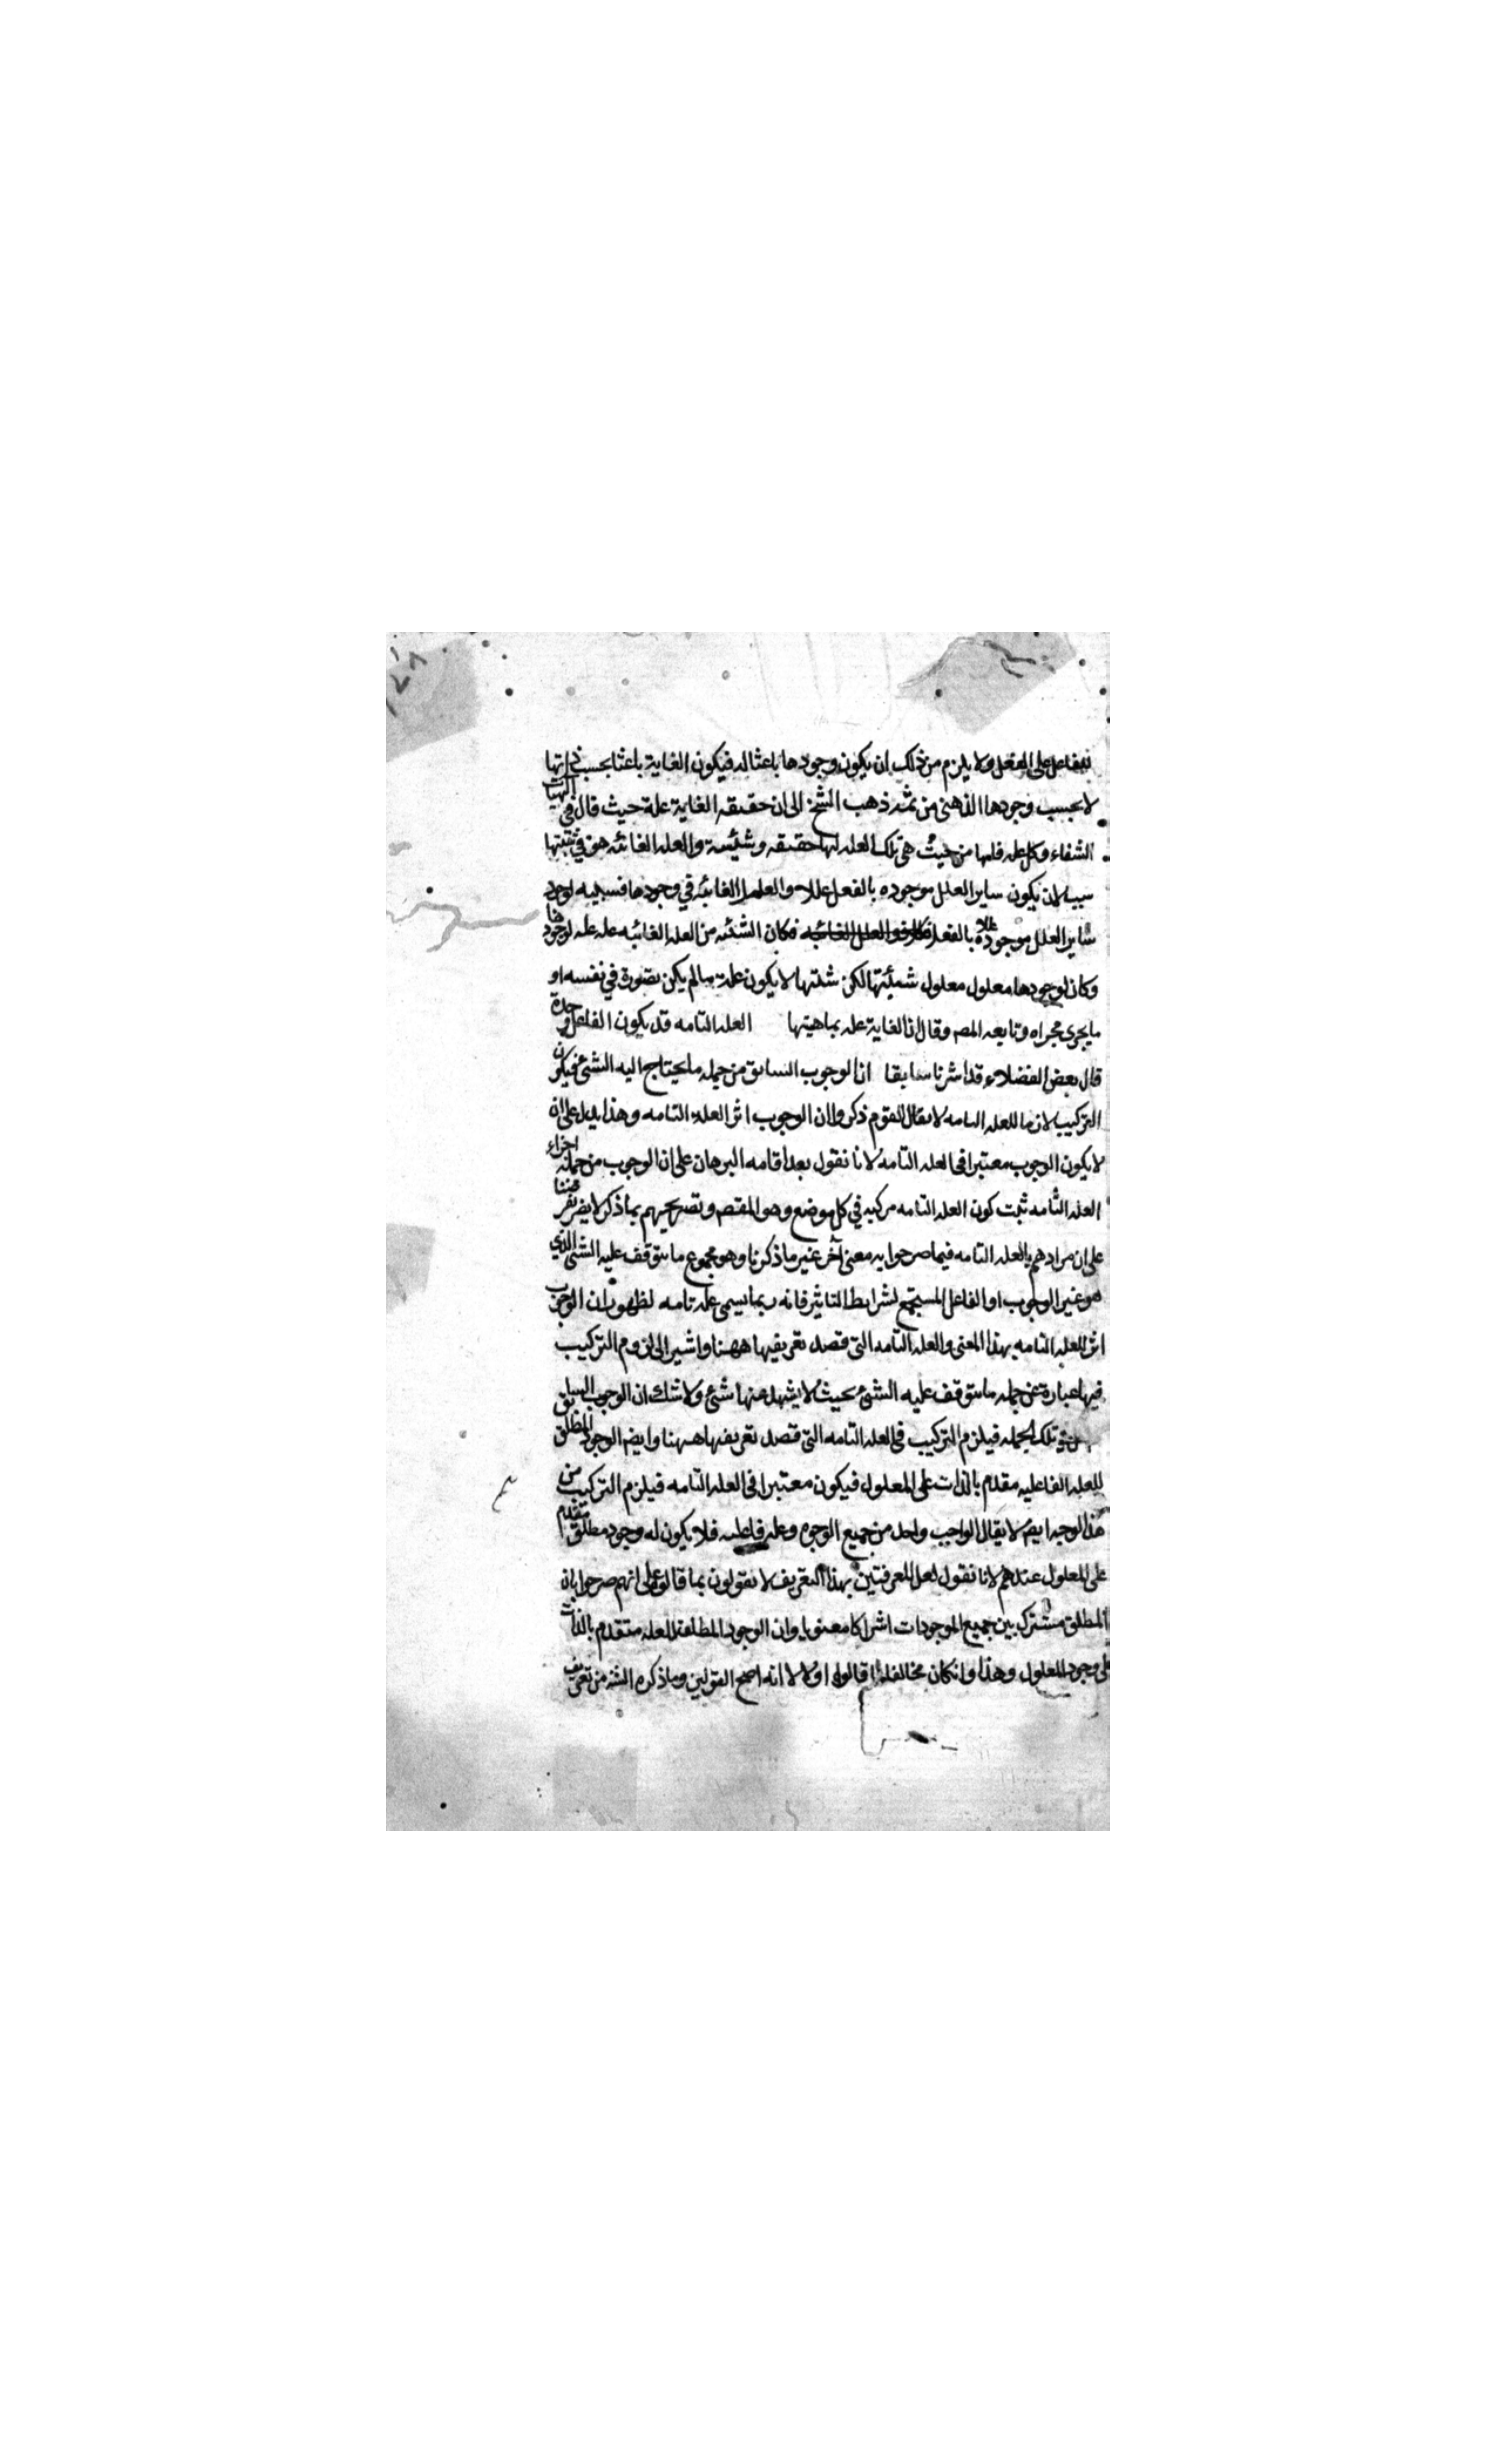 للفاعل على الفعل ولا يلزم من ذلك ان يكون وجودها باعثا له فيكون الغاية باعثا بحسب ذاتها
لا بحسب وجودها الذهني من ثمة ذهب الشيخ الى ان حقيقه الغاية علة حيث قال في الهيات
الشفاء وكل عله فانها من حيث هي تلك العله لها حقيقه وشيئية والعله الغائيه هي في شيئيتها
سبب لان يكون ساير العلل موجوده بالفعل عللا والعله الغائيه في وجودها مسببه لوجود
ساير العلل موجوده عللا بالفعل فكان الشيئيه من العله الغائيه عله عله لوجودها
وكان لوجودها معلول معلول شيئيتها لكن شيئتها لا يكون علة ما لم يكن بصورة في نفسه او
ما يجري مجراه وتابعه المصـ وقال ان الغاية عله بماهيتها العله التامه قد يكون الفاعل وحدة
قال بعض الفضلاء قد اشرنا سابقا ان الوجوب السابق من جمله ما يحتاج اليه الشئ فيكون
التركيب لازما للعله التامه لا يقال القوم ذكروا ان الوجوب اثر العلة التامه وهذا يدل على ان
لا يكون الوجوب معتبرا في العله التامه لانا نقول بعد اقامه البرهان على ان الوجوب من جمله اجزاء
العله التامه ثبت كون العله التامه مركبه في كل موضع وهو المقصـ وتصريحهم بما ذكر لا يضر بغرضنا
على ان مرادهم بالعله التامه فيما صرحوا به معنى آخر غير ما ذكرنا وهو مجموع ما يتوقف عليه الشئ الذي
هو غير الوجوب او الفاعل المستجمع لشرايط التاثير فانه ربما يسمى علة تامه لظهور ان الوجوب
اثر للعله التامه بهذا المعنى والعله التامه التي قصد تعريفها ههنا واشير الى لزوم التركيب
فيها عبارة عن جمله ما يتوقف عليه الشئ بحيث لا يشهل عنها شئ ولا شك ان الوجوب السابق
من تلك الجمله فيلزم التركيب في العله التامه التي قصد تعريفها ههنا وايضـ الوجود المطلق
للعله الفاعليه مقدم بالذات على المعلول فيكون معتبرا في العله التامه فيلزم التركيب من
هذا الوجه ايضـ لا يقال الواجب واحد من جميع الوجوه وعله فاعليه فلا يكون له وجود مطلق متقدم
على المعلول عندهم لانا نقول لعل المعرفين بهذا التعريف لا يقولون بما قالوا على انهم صرحوا بان
المطلق مشترك بين جميع الموجودات اشراكا معنويا وان الوجود المطلق للعله متقدم بالذات
على وجود المعلول وهذا وانكان مخالفا لما قالوا اولا الا انه اصح القولين وما ذكره الشـ من تعريف